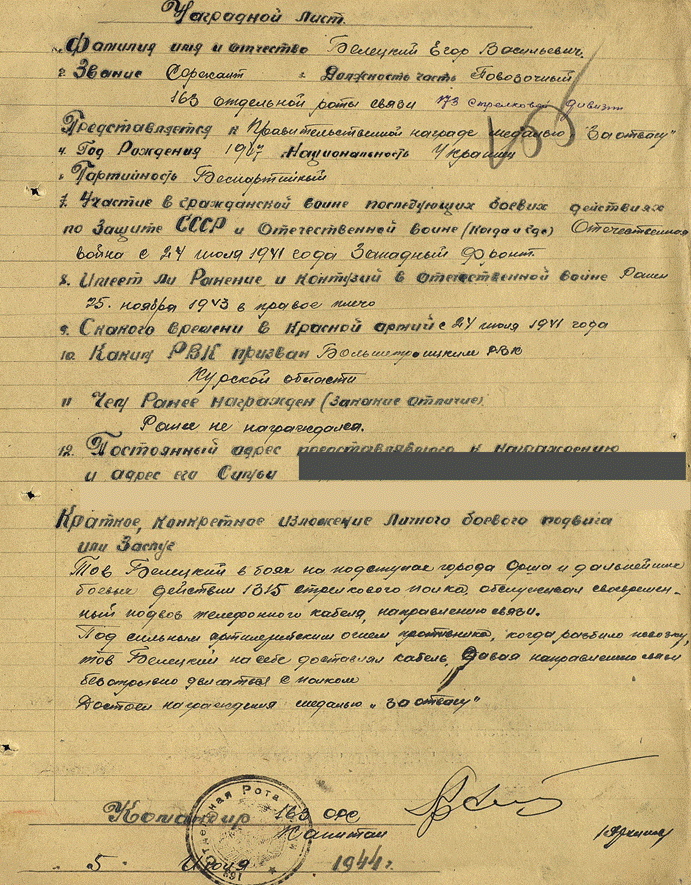 Наградной Лист.
1. Фамилия имя и отчество Белецкий Егор Васильевич.
2. Звание Сержант 3. Должность часть Повозочный
163 отдельной роты связи 173 стрелковой дивизии
Представляется к Правительственной награде медалью "За отвагу"
4. Год Рождения 1907 . Национальность Украинец
6. Партийность Беспартийный
7. Участие в гражданской воине последующих боевих действиях
по Защите СССР и Отечественной воине (Когда и где) Отечественная
война с 24 июля 1941 года Западный Фронт.
8. Имеет ли Ранение и контузий в отечественной воине Ранен
25. ноября 1943 в правое плечо
9. Скакого времени в Красной армий с 24 июля 1941 года
10. Каким РВК призван Большетроицким РВК
Курской области
11 Чем Ранее награжден (Заникание отличие)
Ранее не награждался.
12. Постоянный адрес к награждению
и адрес его Симьи
Краткое, конкретное изложение Личного боевого подвига
или Заслуг
Тов Белецкий в боях на подступах города Орша и дальнейших
боевых действий 1315 стрелкового полка, обслуживал своевремен-
ный подвоз телефонного кабеля, направлению связи.
Под сильным артилерийским огнем противника, когда разбило повозку,
тов Белецкий на себе доставлял кабель, давая направлению связи
безотрывно двигаться с полком
Достоен награждения медалью "За отвагу"
Командир 163 орс
Капитан
5 Июля 1944 г.